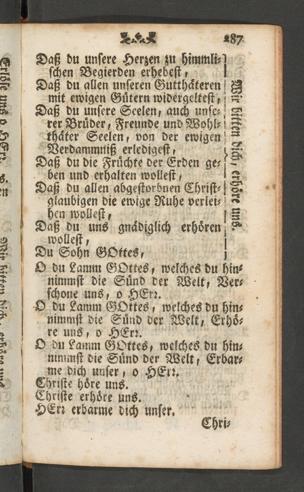 287
Daß du unsere Herzen zu himmli-
schen Begierden erhebest,
Daß du allen unseren Gutthäteren
mit ewigen Gütern widergeltest,
Daß du unsere Seelen, auch unse-
rer Brüder, Freunde und Wohl-
thäter Seelen, von der ewigen
Verdammniß erledigest,
Daß du die Früchte der Erden ge-
ben und erhalten wollest,
Daß du allen abgestorbnen Christ-
glaubigen die ewige Ruhe verlei-
hen wollest,
Daß du uns gnädiglich erhören
wollest,
Du Sohn GOttes,
Wir bitten dich, erhöre uns.
O du Lamm GOttes, welches du hin-
nimmst die Sünd der Welt, Ver-
schone uns, o HErr.
O du Lamm GOttes, welches du hin-
nimmst die Sünd der Welt, Erhö-
re uns, o HErr.
O du Lamm GOttes, welches du hin-
nimmst die Sünd der Welt, Erbar-
me dich unser, o HErr.
Christe höre uns.
Christe erhöre uns.
HErr erbarme dich unser.
Chri-